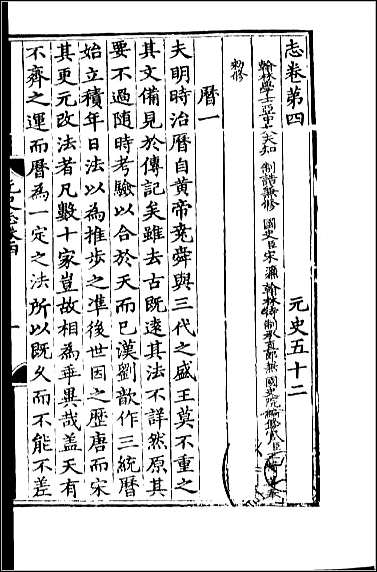 志卷第四 元史五十二
翰林學士亞中大夫知 制誥兼修 國史臣宋濂翰林待制承直郎兼國史院編修官臣王禕等奉
勑修
曆一
夫明時治曆自黃帝堯舜與三代之盛王莫不重之
其文備見於傳記矣雖去古旣遠其法不詳然原其
要不過隨時考驗以合於天而已漢劉歆作三統曆
始立積年日法以為推步之準後世因之歷唐而宋
其更元改法者凡數十家豈故相為乖異哉盖天有
不齊之運而曆為一定之法所以旣久而不能不差